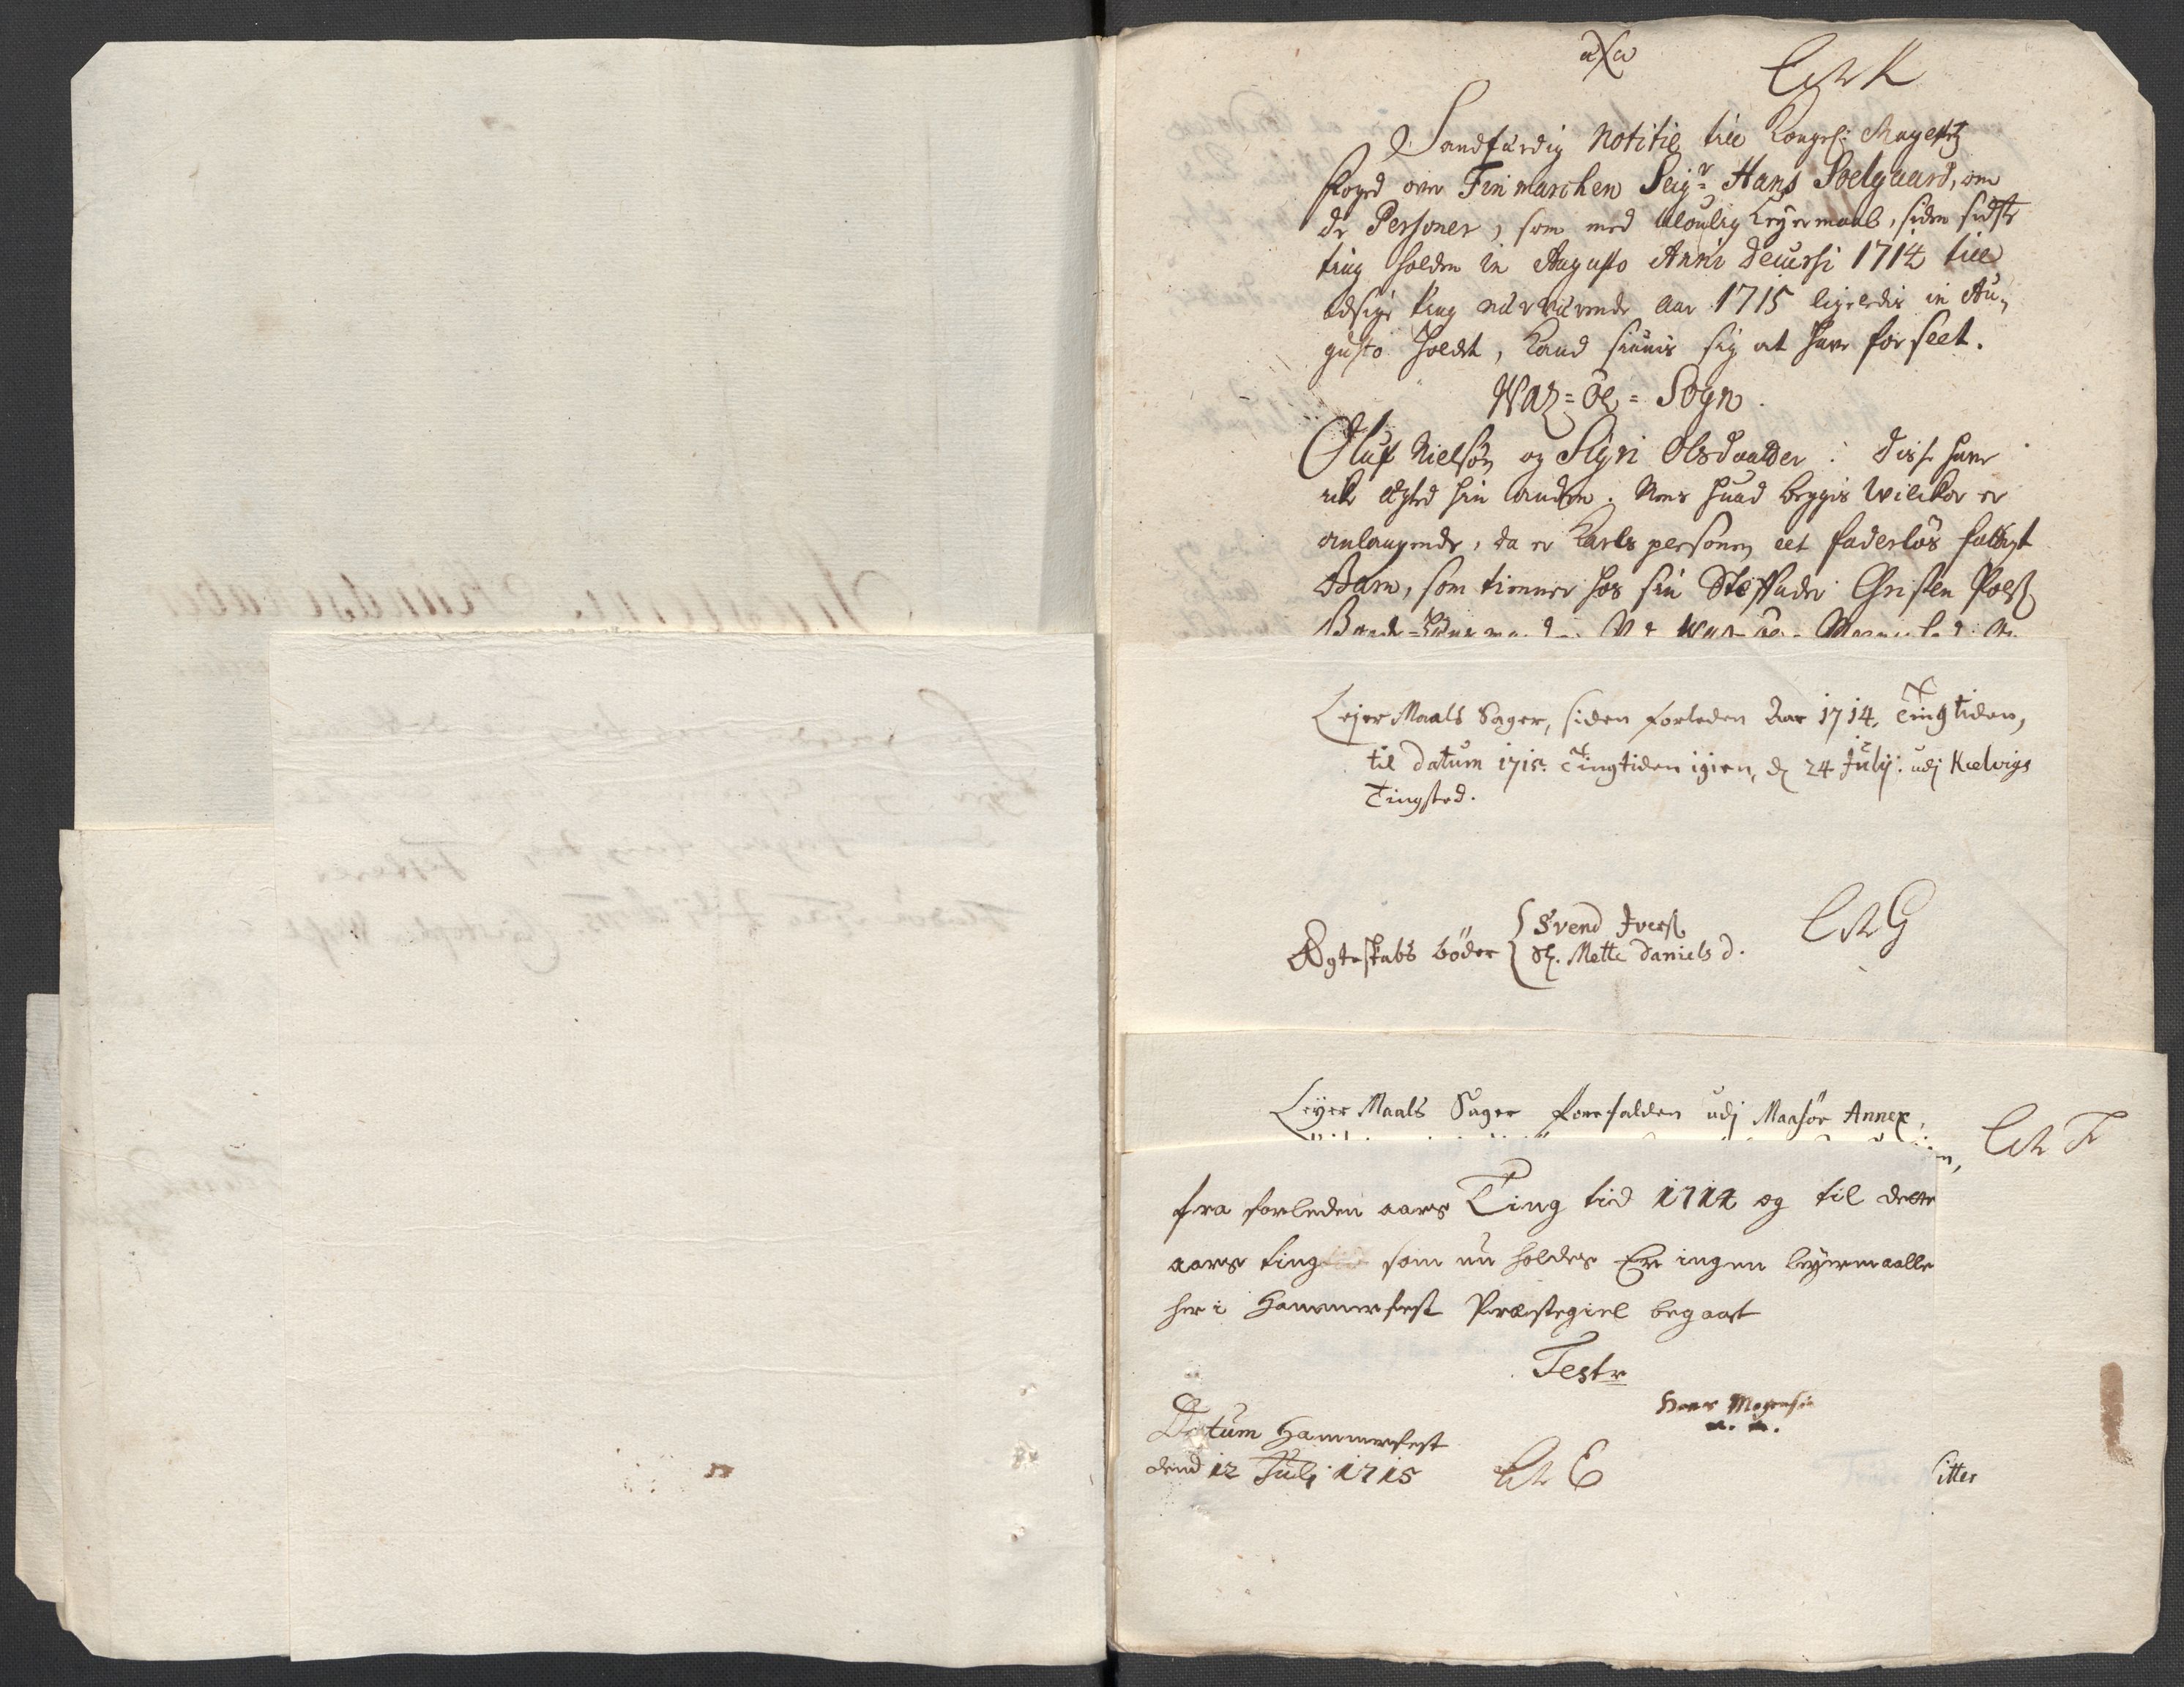 Litr K
Sandfærdig Notitie till Kongel: Mayestz
foged over Finmarchen Seigr Hans Soelgaard, om
de Personer, som med ulovlig Leyermaal, siden sidste
ting holden in Augusto Anni decursi 1714 till
idsige ting nærværende aar 1715 ligeledis in Au-
gusto holdt, kand findis sig at have forseet.
Waz-öe-Sogn.
Oluf Nielsön og Sigri Olsdaatter: disse have
icke ægted hin anden. Mens huad beggis Wilckor er
anlangende, da er Karls personen eet faderlös fattigt
Barn, som tienner hos sin Steffader Christen Poelß
Leyer Maals Sager, siden forleden Aar 1714, Tingtiden,
til datum 1715. Tingtiden igien, d. 24 Julij: udj Kielvigs
Tingsted.
Ægteskabs bøder { Svend Iverß
Mette Daniels d.
Litr G
Leyer Maals Sager forefalden udj Maasöe Annex,
Litr F
fra forleden aars Ting tid 1714 og til dette
aars ting som nu holdes Er ingen leyermaalle
her i Hammerfest Præstegiel begaaet
Teste
Hans Mogensen
Datum Hammerfest
dend 12 Julij 1715
Litr E
sitter